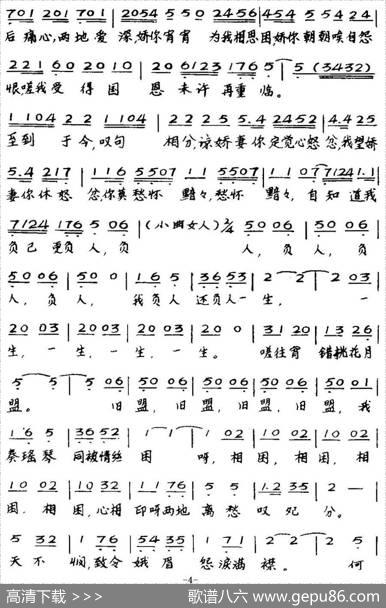 701 201 701 2054 5 50 2456 454 5 5424
后痛心,两地爱深,娇你宵宵 为我相思困,娇你朝朝唉自怨
22160 2010 20 6123 176 5 5 (3432)
恨嗟我受得困 恩未许再重临。
1104 22 1104 22 5.4 2452 4.4 25
至到于今,叹句 相分,谅娇妻你定觉心怒 忿,我望娇
5.4 217 116 5507 11 5507 1107 7124 1.1
妻你休怒 忿你莫愁怀 黯々,愁怀 黯々,自知道我
7124 176 5 06 (小幽女人) 5006 5006
负己更负人,负 人,负 人,负
5006 500 165 3653 2 2 2 03
人,负 人, 我负人 还负人一生, 一
2003 2003 2003 200 31 20 13 26
生,一 生,一 生,一 生。 嗟往宵 错挑花月
5 5 5 06 5006 5006 5006 501
盟。 旧 盟,旧 盟,旧 盟,我
165 3652 1 1 102 1002 1002
奏瑶琴 同被情丝 困 呀,相 困,相 困,相
1002 1032 1176 5 5 1.2 35 2 —
困,相 困,心相 印呀两地 离愁 叹 分。
5 32 176 5435 171 7. 6 5 32
天不悯,致令娥眉 怨泪满 襟。何
-4-
高清下载 >>>
歌谱八六 www.gepu86.com